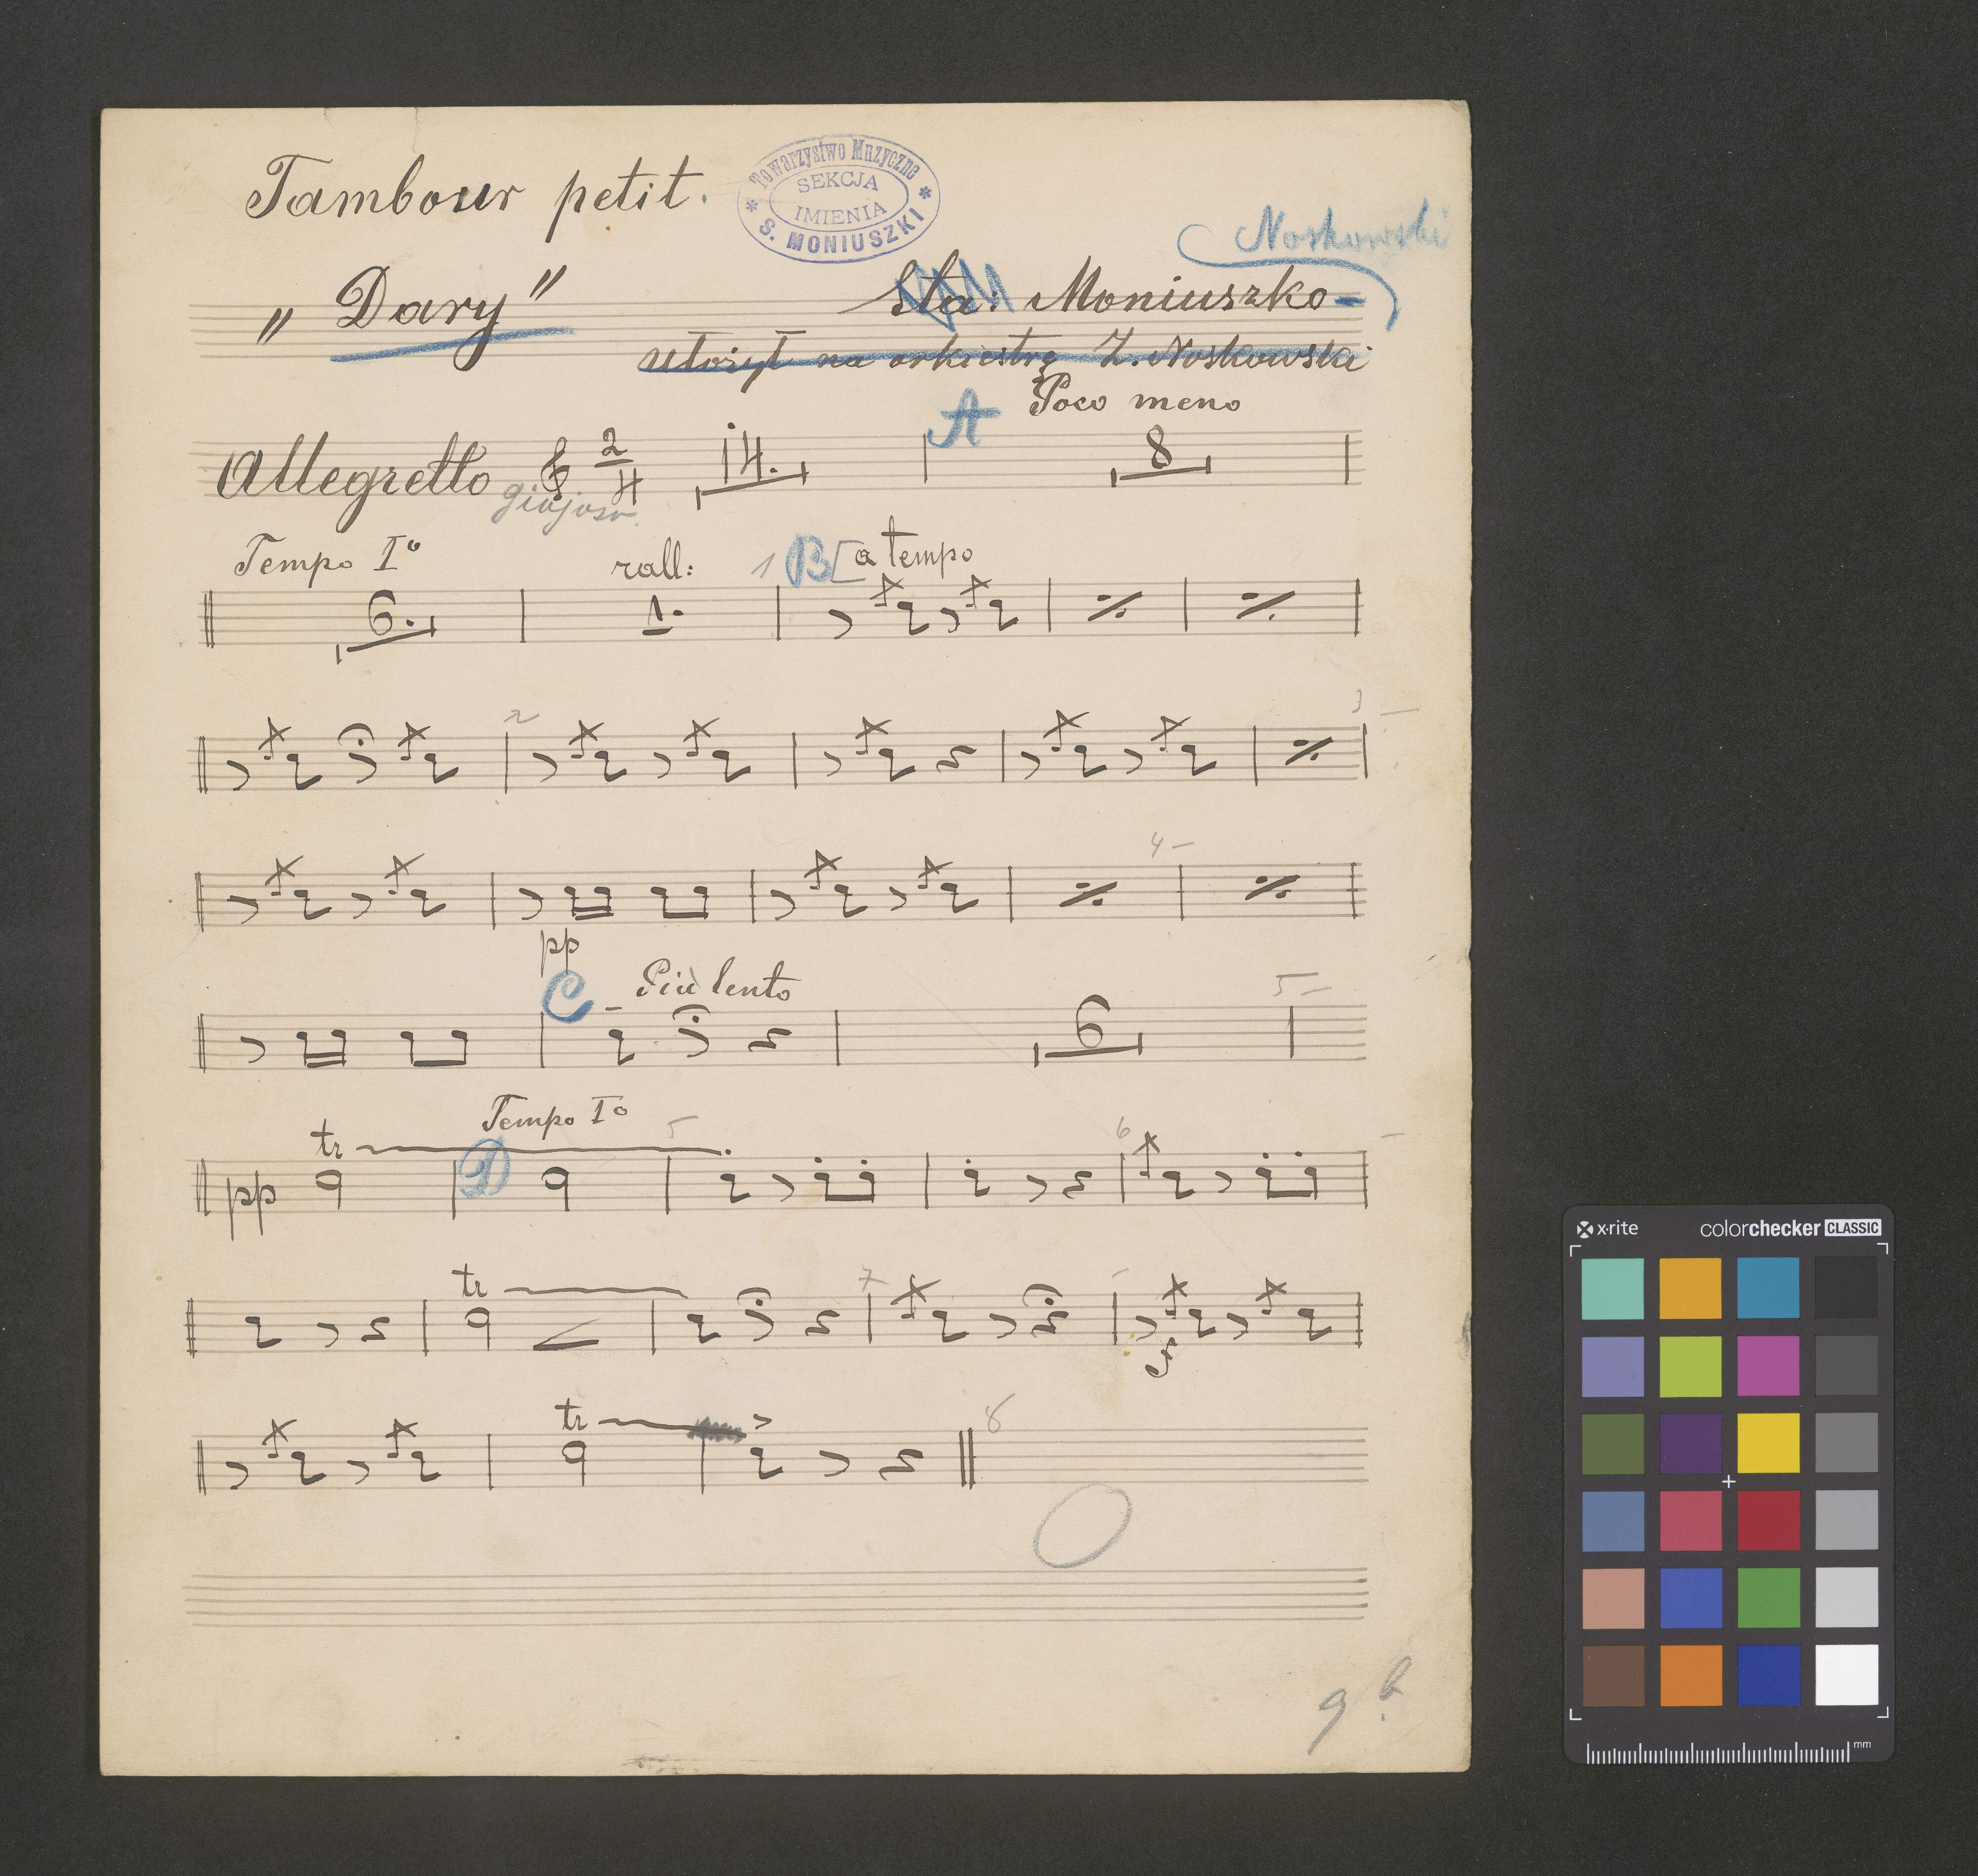 Tambour petit.
Towarzystwo Muzyczne
SEKCJA
IMIENIA
S. MONIUSZKI
Noskowski
„Dary" Sta: Moniuszko
ułożył na orkiestrę Z. Noskowski
A Poco meno
Allegretto 2/4 14. 8
giojoso
Tempo Iº rall: 1 B [a tempo
6. 1.
2 3
4
pp
C Più lento 5
6
Tempo Iº 5 6
tr
pp D
tr 7
tr 8
9
x·rite colorchecker CLASSIC
mm